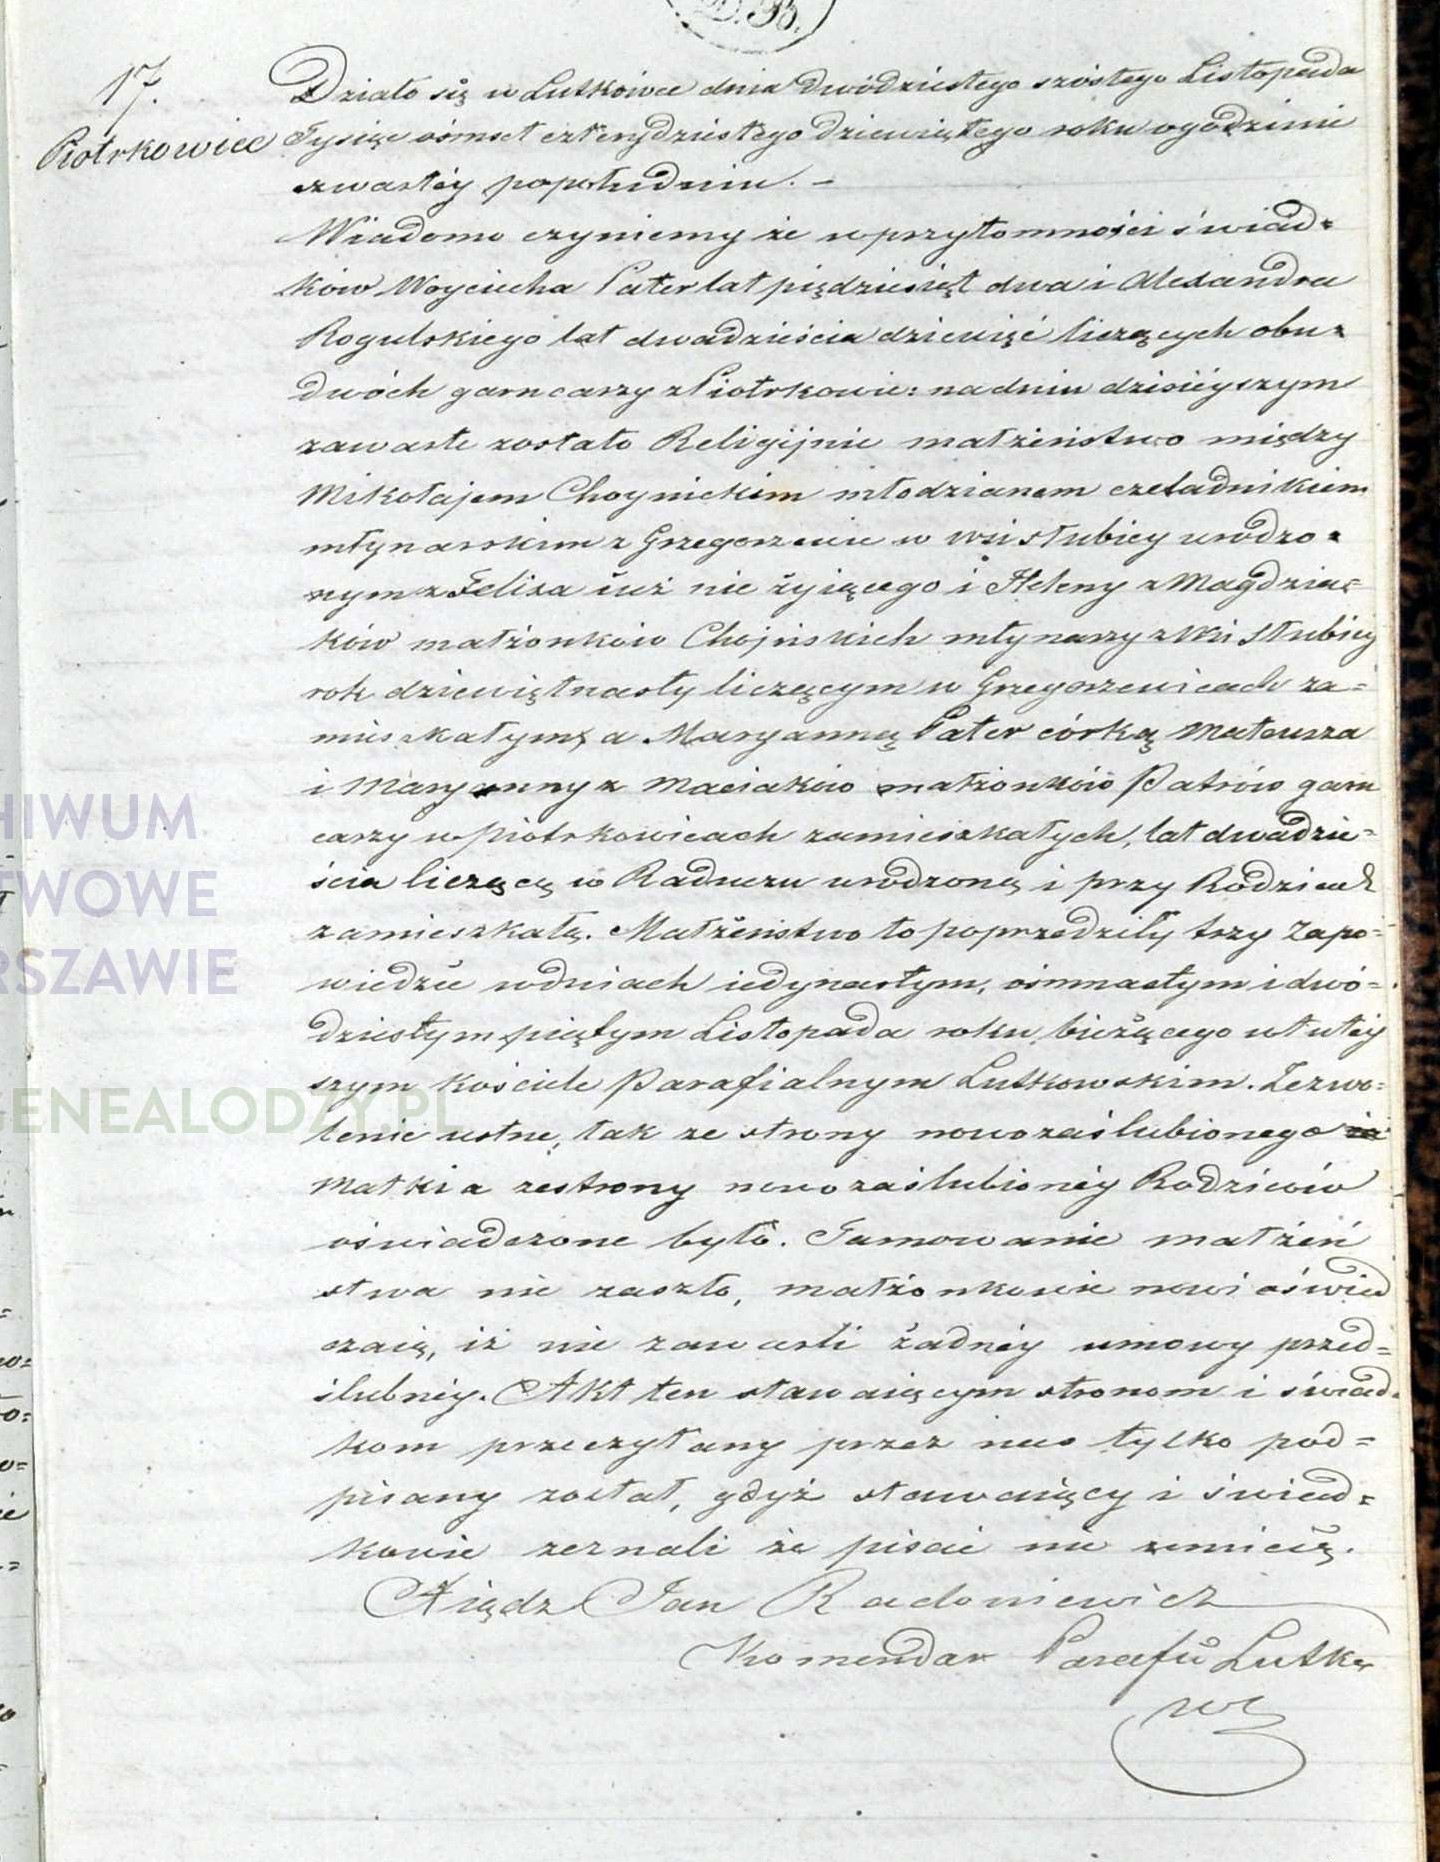 17.
Piotrkowice
Działo się w Lutkówce dnia dwódziestego szóstego Listopada
Tysiąc ośmset czterydziestego dziewiątego roku ogodzinie
czwartéy popołudniu. –
Wiadomo czyniemy że wprzytomności świad=
ków Woyciecha Pater lat piędziesiąt dwa i Alexandra
Rogulskiego lat dwadzieścia dziewięć liczących obu=
dwóch garncarzy z Piotrkowic: na dniu dzisiéyszym
zawarte zostało Religijnie małżeństwo między
Mikołajem Choynickim młodzianem czeladnikiem
młynarskim z Grzegorzewic w wsi Słubicy urodzo=
nym z Felixa iuż nie żyiącego i Heleny z Magdzia=
ków małżonków Chojńskich młynarzy z wsi Słubicy
rok dziewiętnasty liczącym w Grzegorzewicach za=
mieszkałym, a Maryanną Pater córką Mateusza
i Maryanny z Maciaków małżonków Patrów garn
carzy w Piotrkowicach zamieszkałych, lat dwadzie=
ścia liczącą w Raduczu urodzoną i przy Rodzicach
zamieszkałą. Małżeństwo to poprzedziły trzy Zapo=
wiedzie wdniach iedynastym, ośmnastym i dwó=
dziestym piątym Listopada roku bieżącego w tutéy
szym Kościele Parafialnym Lutkowskim. Zezwo=
lenie ustne, tak ze strony nowozaślubionego
Matki a zestrony nowozaślubionéy Rodziców
oświadczone było. Tamowanie małżeń
stwa nie zaszło, małżonkowie nowi oświad
czaią, iż nie zawarli żadnéy umowy przed=
ślubnéy. Akt ten stawaiącym stronom i świad=
kom przeczytany przez nas tylko pod=
pisany został, gdyż stawaiący i świad=
kowie zeznali że pisać nie umieią.
Xiądz Jan Radoniewicz
Komendarz Parafii Lutkó
wce
HIWUM
TWOWE
RSZAWIE
GENEALODZY.PL